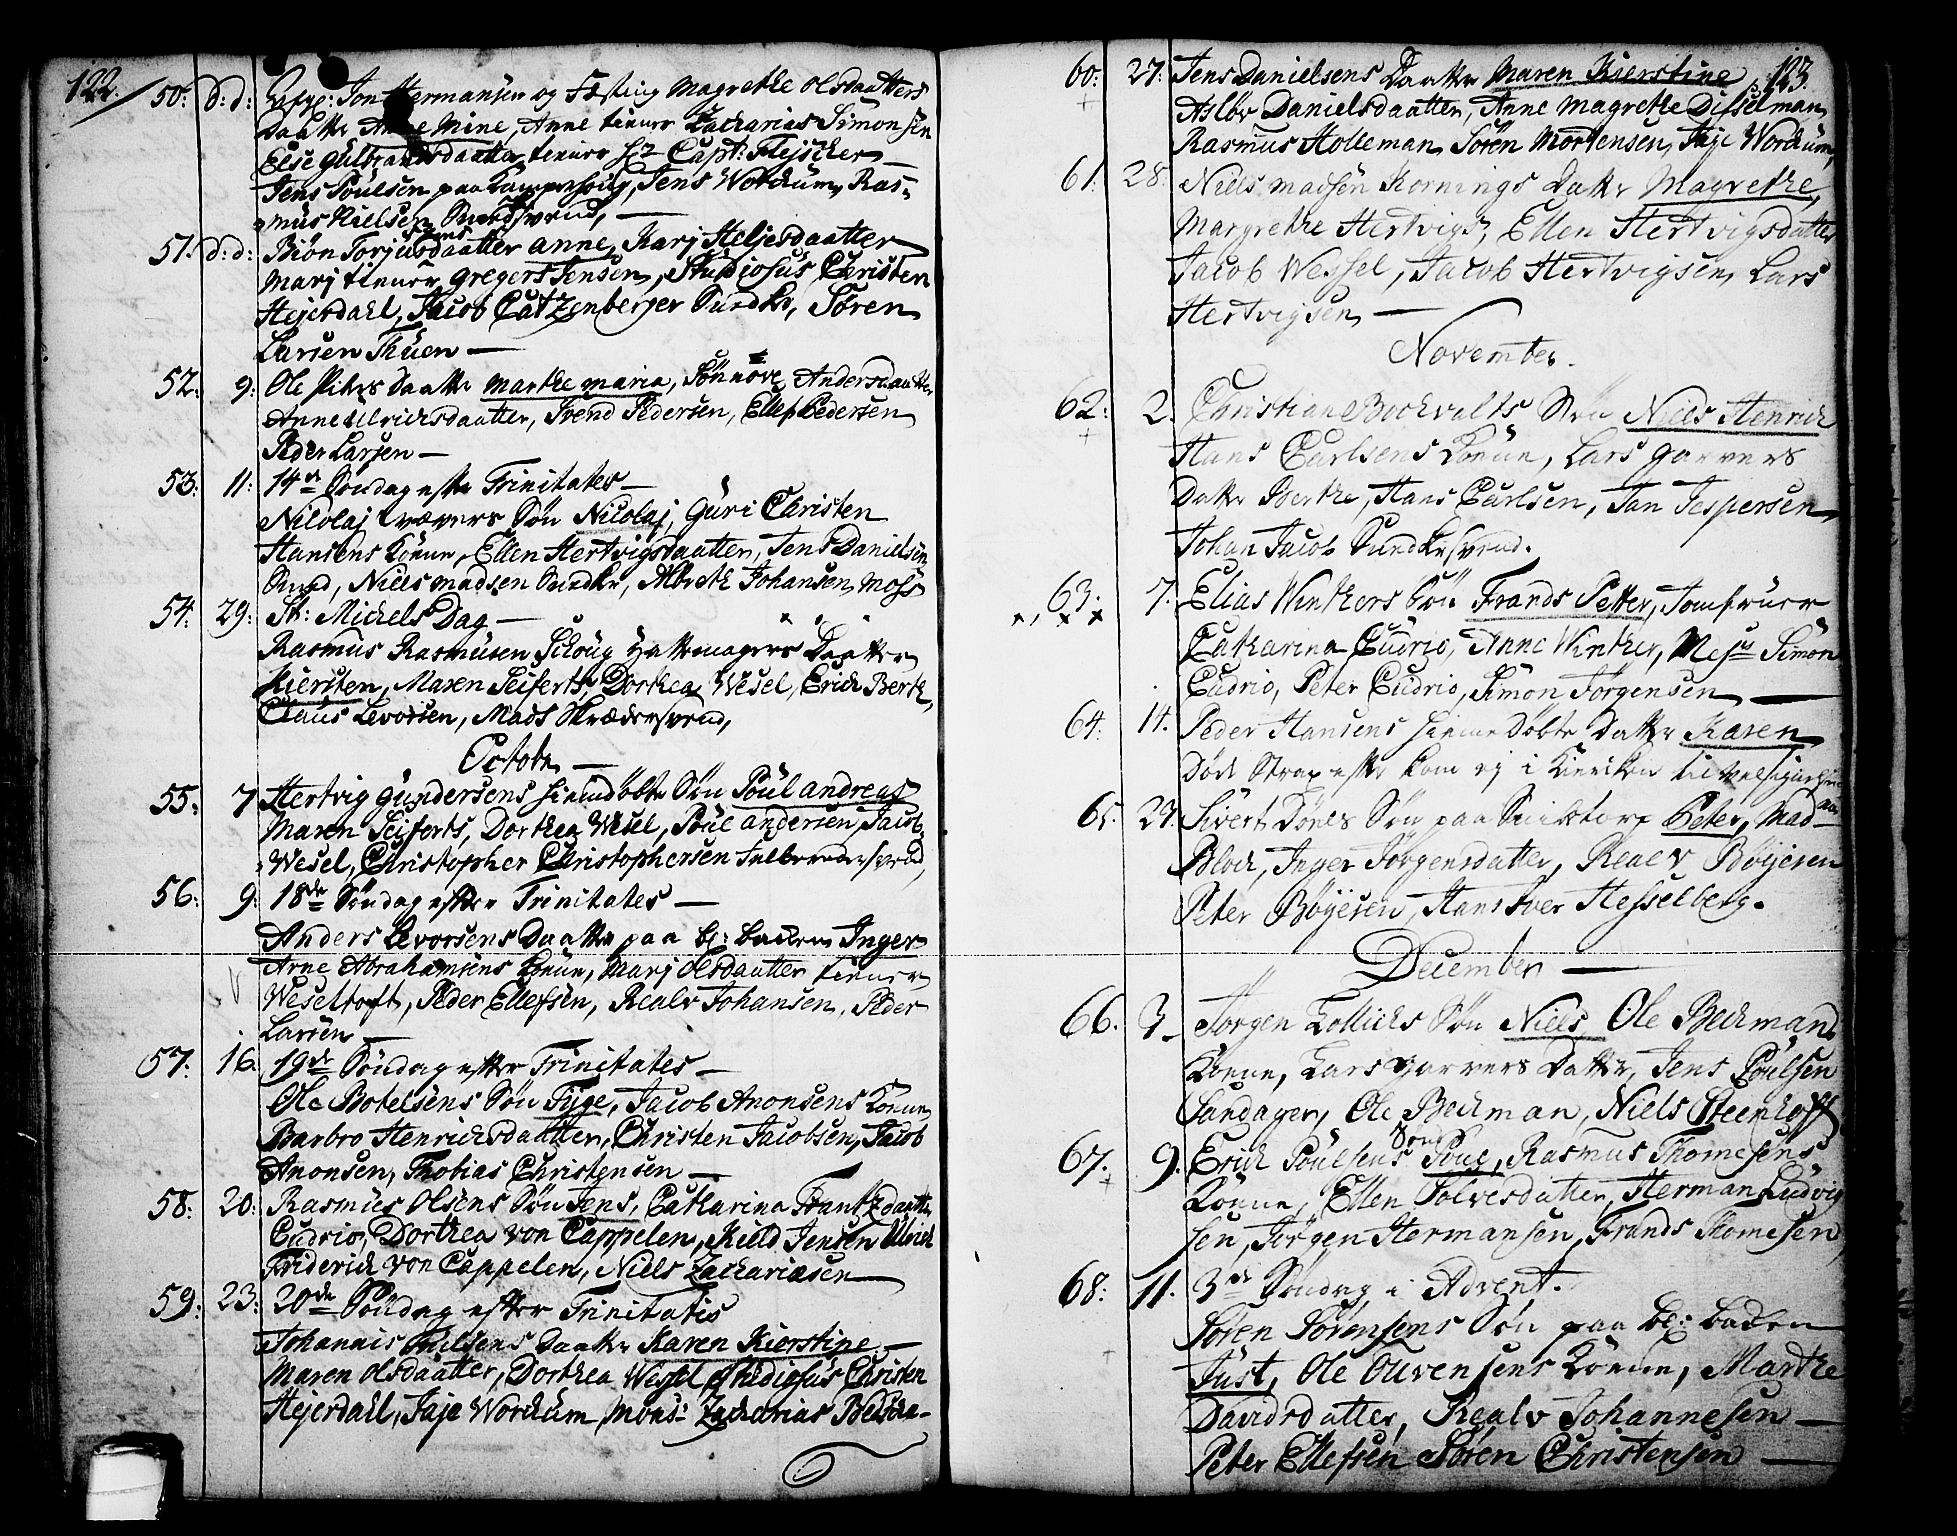 122.
50: d: d: Jon Hermansen og Festing Magrethe Olsdaatters
Daatter Anne Mine, Anne tiener Zacharias Simonsen
Else Gulbrandsdaatter tiener hr Capt: Flejscher
Jens Poulsen paa Kamperhoug, Jens Workum, Ras-
mus Nielsen Smedsvend,
51. d: d: Biøn Torjusdaatter Anne, Karj Heljesdaatter
Marj tiener Gregers Jensen, Studiosus Christen
Hejerdahl, Jacob Catzenberger Snedker, Søren
Larsen Thuen
52. 9: Ole Piters Daatter Marthe Maria, Sønnove Andersdaatter
Anne Ulrichsdaatter, Svend Pedersen, Ellef Pedersen
Peder Larsen
53: 11: 14de Søndag efter Trinitates
Nicolaj Wævers Søn Nicolaj, Guri Christen
Hansens Konne, Ellen Hertvigsdaatter, Jens Danielsen
Smed, Niels Madsen Snedker, Albreth Johansen Moss
54: 29: St: Michels Dag
Rasmus Rasmusen Schoug Hattemagers Daatter
Kiersten, Maren Seiferts, Dorthea Wesel, Erich Berth,
Claus Levorsen, Mads Skrædersvend,
October
55: 7 Hertvig Gundersens hiemdøbte Søn Poul Andreas
Maren Seiferts, Dorthea Wesel, Poul Andersen, Jacob
Wesel, Christopher Christophersen Felberedersvend,
56: 9: 18de Søndag efter Trinitates
Anders Levorsens Daatter paa bj: Bacchen Inger
Arne Abrahamsens Konne, Marj Olsdaatter tiener
Weseltoft, Peder Ellefsen, Realv Johansen, Peder
Larsen
57: 16. 19de Søndag efter Trinitates
Ole Botelsens Søn Tyge, Jacob Anonsens Konne
Barbro Henrichsdaatter, Christen Jacobsen, Jacob
Anonsen, Thobias Christensen
58: 20: Rasmus Olsens Søn Jens, Catharina Frantzdaatter
Cudrio, Dorthea von Cappelen, Kield Jensen Ulrich
Friderich von Cappelen, Niels Zachariasen
59: 23: 20de Søndag efter Trinitatis
Johannis Daatter Karen Kierstine
Maren Olsdaatter, Dorthea Wessel Studiosus Christen
Hejerdahl, Faje Workum Mons: Zacharias
123.
60: 27: Jens Danielsens Daatter Maren Kierstine
Aslov Danielsdaatter, Anne Magrethe Disselman
Rasmus Holleman, Søren Mortensen, Faje Workum,
61: 28. Niels Madsen Kornings Datter Magrethe,
Margrethe Hertvigs, Ellen Hertvigsdatter
Jacob Wessel, Jacob Hertvigsen, Lars
Hertvigsen
November.
62: 2. Christian Bockvalts Søn Niels Henrich
Hans Carlsens Konne, Lars Garvers
Datter Berthe, Hans Carlsen, Jan Jespersen
Johan Jacob Snedkersvend.
63: 7. Elias Winthers Søn Frands Petter, Jomfruer
Catharina Cudrio, Anne Winther, Mess: Simon
Cudrio, Peter Cudrio, Simon Jørgensen
64: 14. Peder Hansens hiemmedøbte Datter Karen
døde Strax efter kom ej i Kierken
65. 27. Sivert Dønes Søn paa Peter, Mad
Block, Inger Jørgensdatter, Realv Bøyesen
Peter Bøyesen, Hans Iver Hesselberg.
December
66. 3 Jørgen Søn Niels, Ole Beckmands
Konne, Lars Garvers Datter, Jens Poulsen
Landager, Ole Beckman, Niels Steenhoff
67. 9. Erich Poulsens Søn Poul, Rasmus Thomesens
Konne, Ellen Solvesdatter, Herman Ludvig
sen, Jørgen Hermansen, Frands Thomesen
68: 11. 3de Søndag i Advent.
Søren Sørensens Søn paa bj: Bacchen
Just, Ole Olivensens Konne, Marthe
Davidsdatter, Realv Johannesen
Peter Ellefsen Søren Christensen